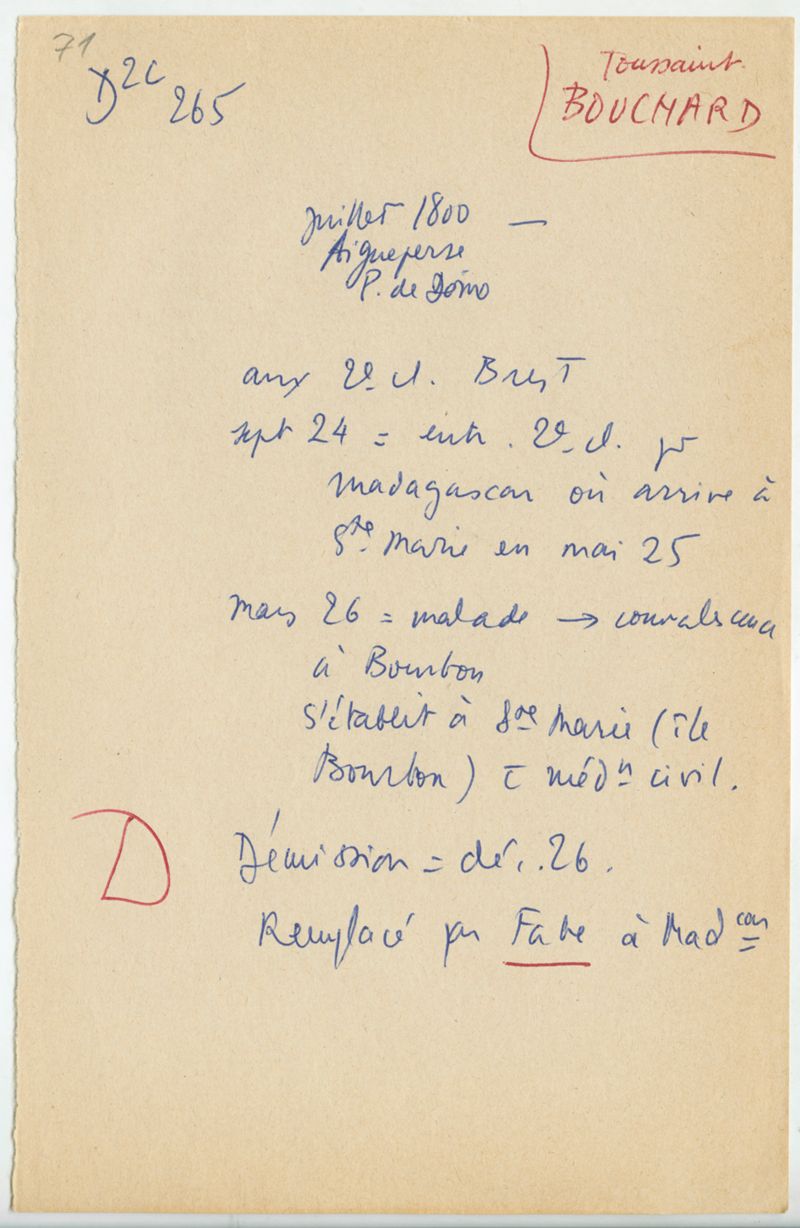 71
D²ᶜ 265
Toussaint
BOUCHARD
Juillet 1800 —
Aigueperse
P. de Dôme
aux 2e cl. Brest
sept 24 = entr. 2e cl. pr
Madagascar où arrive à
Ste Marie en mai 25
Mars 26 = malade → convalescence
à Bourbon
S'établit à Ste Marie (île
Bourbon) c̄ médn civil.
D
Démission = déc. 26.
Remplacé par à Madcar